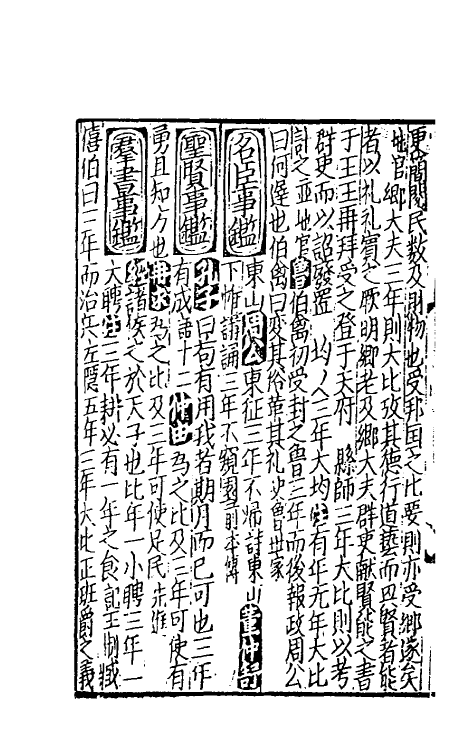 更簡閱民數及財物也受邦国之比要則亦受鄉遂矣
地官鄉大夫三年則大比攷其德行道藝而興賢者能
者以礼礼賓之厥明鄉老及鄉大夫群吏献賢能之書
于王王再拜受之登于天府 縣師三年大比則以考
群吏而以詔廢置 均人三年大均註有年无年大比
計之並地官魯伯禽初受封之魯三年而後報政周公
曰何遲也伯禽曰变其俗革其礼史魯世家
名臣事鑑
東山周公東征三年不歸詩東山董仲舒
下帷講誦三年不窺園前本傳
聖賢事鑑
孔子曰苟有用我者期月而已可也三年
有成語十三仲由為之比及三年可使有
勇且知方也冉求為之比及三年可使足民先進
群書事鑑
經諸侯之於天子也比年一小聘三年一
大聘註三年耕必有一年之食記王制臧
僖伯曰三年而治兵左隱五年三年大比正班爵之義